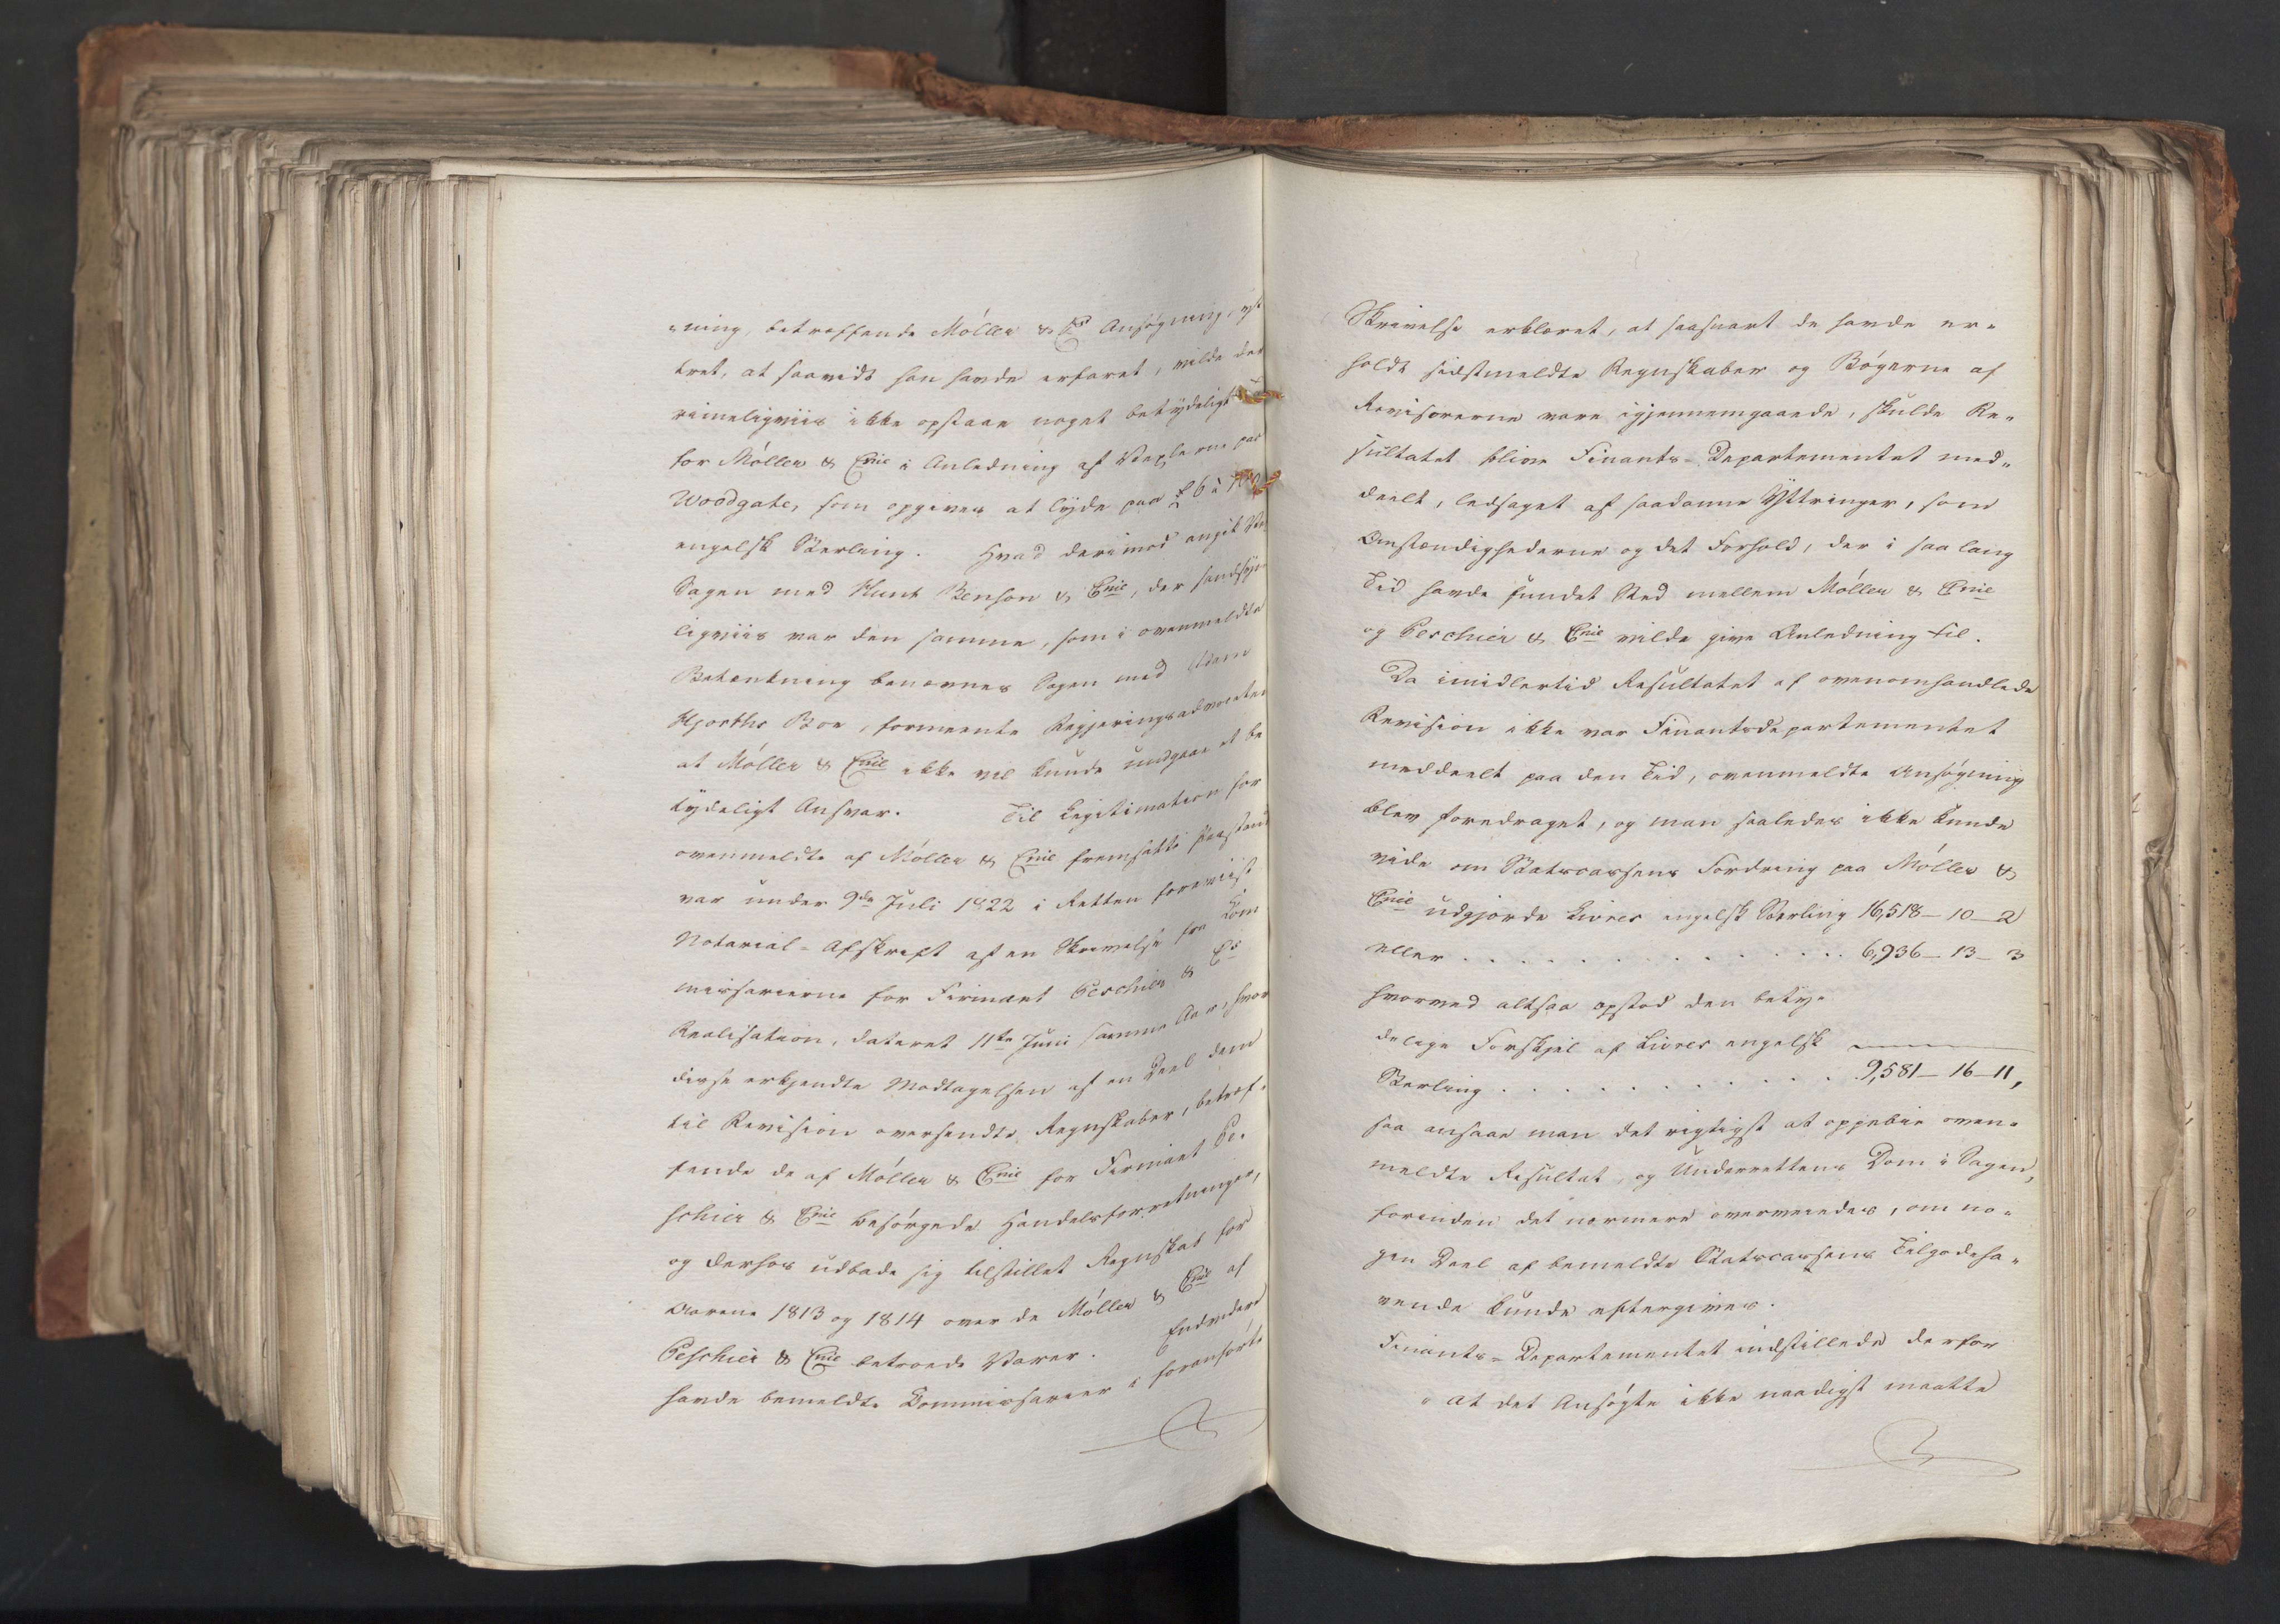 "ning, betræffende Møller & Cs Ansøgning, yt
tret, at saavidt han havde erfaret, vilde der
rimeligviis ikke opstaae noget betydeligt
for Møller & Cnie i Anledning af Vexlerne paa
Woodgate, som opgives at lyde paa £ 6 à 7000
engelsk Sterling. Hvad derimod angik
Sagen med Hunt Benson & Cnie, der sandsyn
ligviis var den samme, som i ovenmeldte
Betænkning benævnes Sagen med Adam
Hjorths Boe, formeente Regjeringsadvocaten
at Møller & Cnie ikke vil kunde undgaae et be
tydeligt Ansvar. Til Legitimation for
ovenmeldte af Møller & Cnie fremsatte Paastand
var under 9de Juli 1822 i Retten fremviist
Notarial-Afskrift af en Skrivelse fra Kom
missarierne for Firmaet Peschier & Cs
Realisation, dateret 11te Juni samme Aar, hvor
disse erkjendte Modtagelsen af en Deel dem
til Revision oversendte Regnskaber, betræf-
fende de af Møller & Cnie for Firmaet Pe-
schier & Cnie besørgede Handelsforretninger,
og derhos udbade sig tilstillet Regnskab for
Aarene 1813 og 1814 over de Møller & Cnie af
Peschier & Cnie betroede Varer. Endvidere
havde bemeldte Kommissarier i foranførte
Skrivelse erklæret, at saasnart de havde er-
holdt sidstmeldte Regnskaber og Bøgerne af
Revisorerne vare igjennemgaaede, skulde Re-
sultatet blive Finants-Departementet med-
deelt, ledsaget af saadanne Yttringer, som
Omstændighederne og det Forhold, der i saa lang
Tid havde fundet Sted mellem Møller & Cnie
og Peschier & Cnie vilde give Anledning til.
Da imidlertid Resultatet af ovenomhandlede
Revision ikke var Finantsdepartementet
meddeelt paa den Tid, ovenmeldte Ansøgning
blev foredraget, og man saaledes ikke kunde
vide om Statscassens Fordring paa Møller &
Cnie udgjorde Livres engelsk Sterling 16,518-10-2
eller . . . . . . . . . . . . 6,936-13-3
hvorved altsaa opstod den bety-
delige Forskjel af Livres engelsk
Sterling . . . . . . . . . . . . 9,581-16-11,
saa ansaae man det rigtigst at oppebie oven-
meldte Resultat, og Underrettens Dom i Sagen,
forinden det nærmere overveiedes, om no-
gen Deel af bemeldte Statscassens Tilgodeha-
vende kunde eftergives.
Finants-Departementet indstillede derfor
"at det Ansøgte ikke naadigst maatte